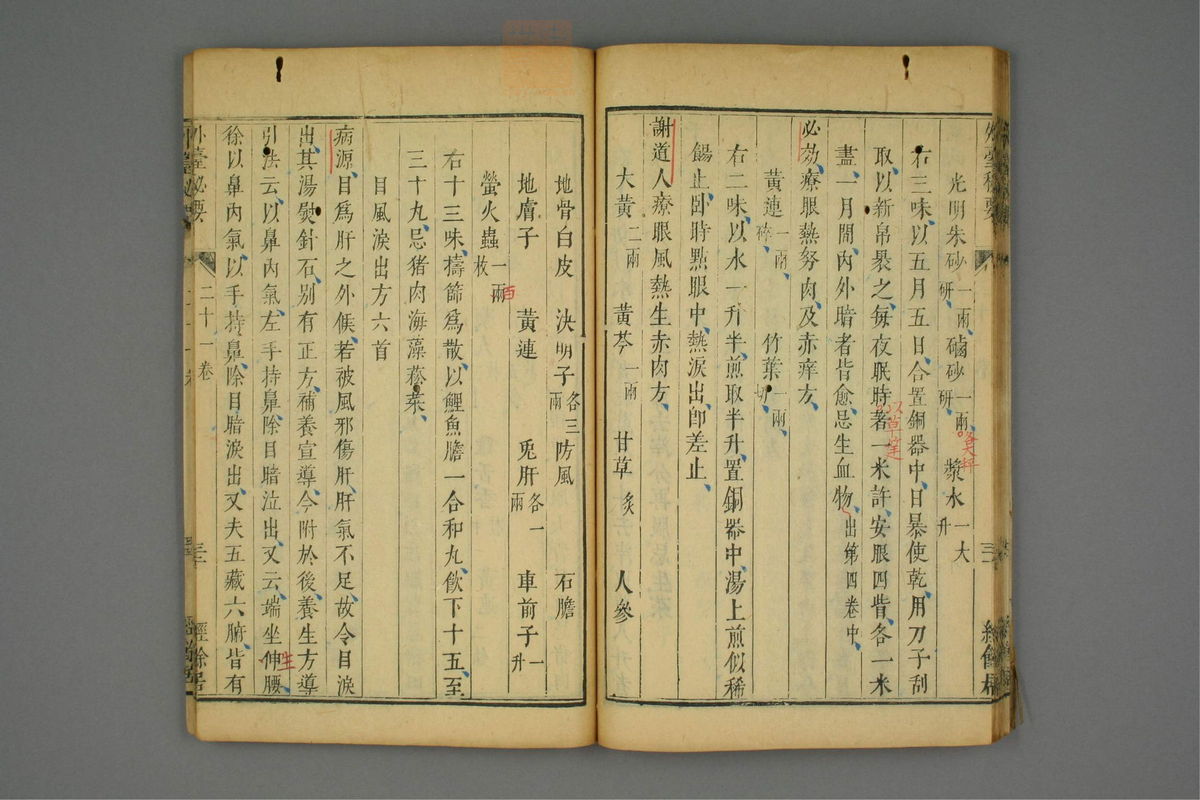 光明朱砂一兩研、硇砂一兩研、漿水一大升
右三味、以五月五日、合置銅器中、日暴使乾、用刀子刮
取、以新帛裹之、每夜眠時著一米許、安眼四眥、各一米
盡一月間、內外瞖者皆愈、忌生血物、出第四卷中、
必效、療眼熱努肉、及赤痒方、
黃連一兩碎、竹葉一兩切、
右二味、以水一升半、煎取半升、置銅器中、湯上煎似稀
餳止、臥時點眼中、熱淚出、卽差止、
謝道人療眼風熱生赤肉方、
大黃二兩 黃芩一兩 甘草炙 人參
地骨白皮 決明子各三兩 防風 石膽
地膚子 黃連 兎肝各一兩 車前子一升
螢火蟲一兩枚
百
右十三味、擣篩爲散、以鯉魚膽一合和丸、飮下十五、至
三十丸、忌猪肉海藻菘菜、
目風淚出方六首
病源、目爲肝之外候、若被風邪傷肝、肝氣不足、故令目淚
出、其湯熨針石、別有正方、補養宣導、今附於後、養生方導
引法云、以鼻內氣、左手持鼻、除目暗泣出、又云、端坐伸腰、
生
徐以鼻內氣、以手持鼻、除目暗淚出、又夫五藏六腑、皆有
外臺秘要 二十一卷 經餘居